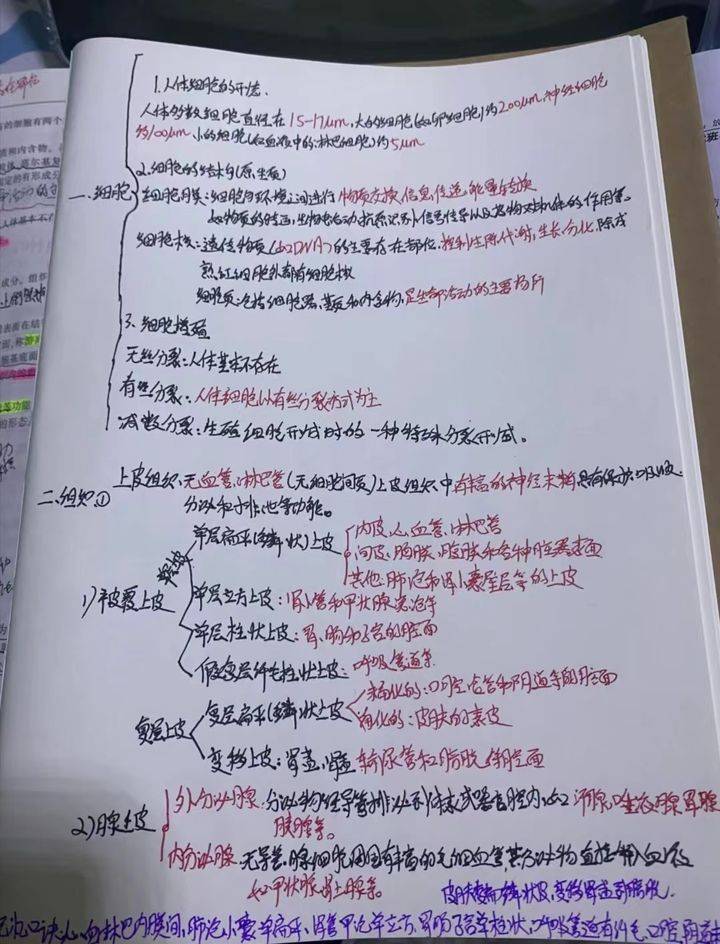 1.人体细胞的形态.
人体多数细胞直径在15-17μm,大的细胞(如卵细胞)约200μm,神经细胞
约100μm 小的细胞(如血液中的淋巴细胞)约5μm
2.细胞的结构(原生质)
一.细胞
细胞膜:细胞与环境之间进行物质交换,信息传递,能量转换
如物质的转运,生物电活动,抗原识别,信息传导以及药物对机体的作用等。
细胞核:遗传物质(如DNA)的主要存在部位,控制生陈代谢,生长,分化,除成
熟红细胞外都有细胞核
细胞质:包括细胞器,基质和内含物,是生命活动的主要场所
3.细胞增殖
无丝分裂:人体基本不存在
有丝分裂:人体细胞以有丝分裂方式为主
减数分裂:生殖细胞形成时的一种特殊分裂形式。
二.组织①
上皮组织:无血管,淋巴管(无细胞间质)上皮组织中有丰富的神经末梢,具有保护,吸收,
分泌和排泄等功能。
1)被覆上皮
单层上皮
单层扁平(鳞状)上皮
内皮:心,血管,淋巴管
间皮:胸膜,腹膜和各种脏器表面
其他:肺泡和肾小囊壁层等的上皮
单层立方上皮:肾小管和甲状腺滤泡等
单层柱状上皮:胃,肠和子宫的腔面
假复层纤毛柱状上皮:呼吸管道等
复层上皮
复层扁平(鳞状)上皮
未角化的:口腔,食管和阴道等的腔面
角化的:皮肤的表皮
变移上皮:肾盏,肾盂,输尿管和膀胱的腔面
2)腺上皮
外分泌腺:分泌物经导管排泌到体表或器官腔内,如汗腺,唾液腺,胃腺
胰腺等。
内分泌腺:无导管,腺细胞周围有丰富的毛细血管,其分泌物直接入血液
如甲状腺,肾上腺等。
皮肤复扁鳞状皮,变移肾盂到膀胱.
口诀:心血淋巴内膜间,肺泡小囊单扁平,肾管甲泡单立方,胃肠子宫单柱状,呼吸管道有纤毛,口腔阴道